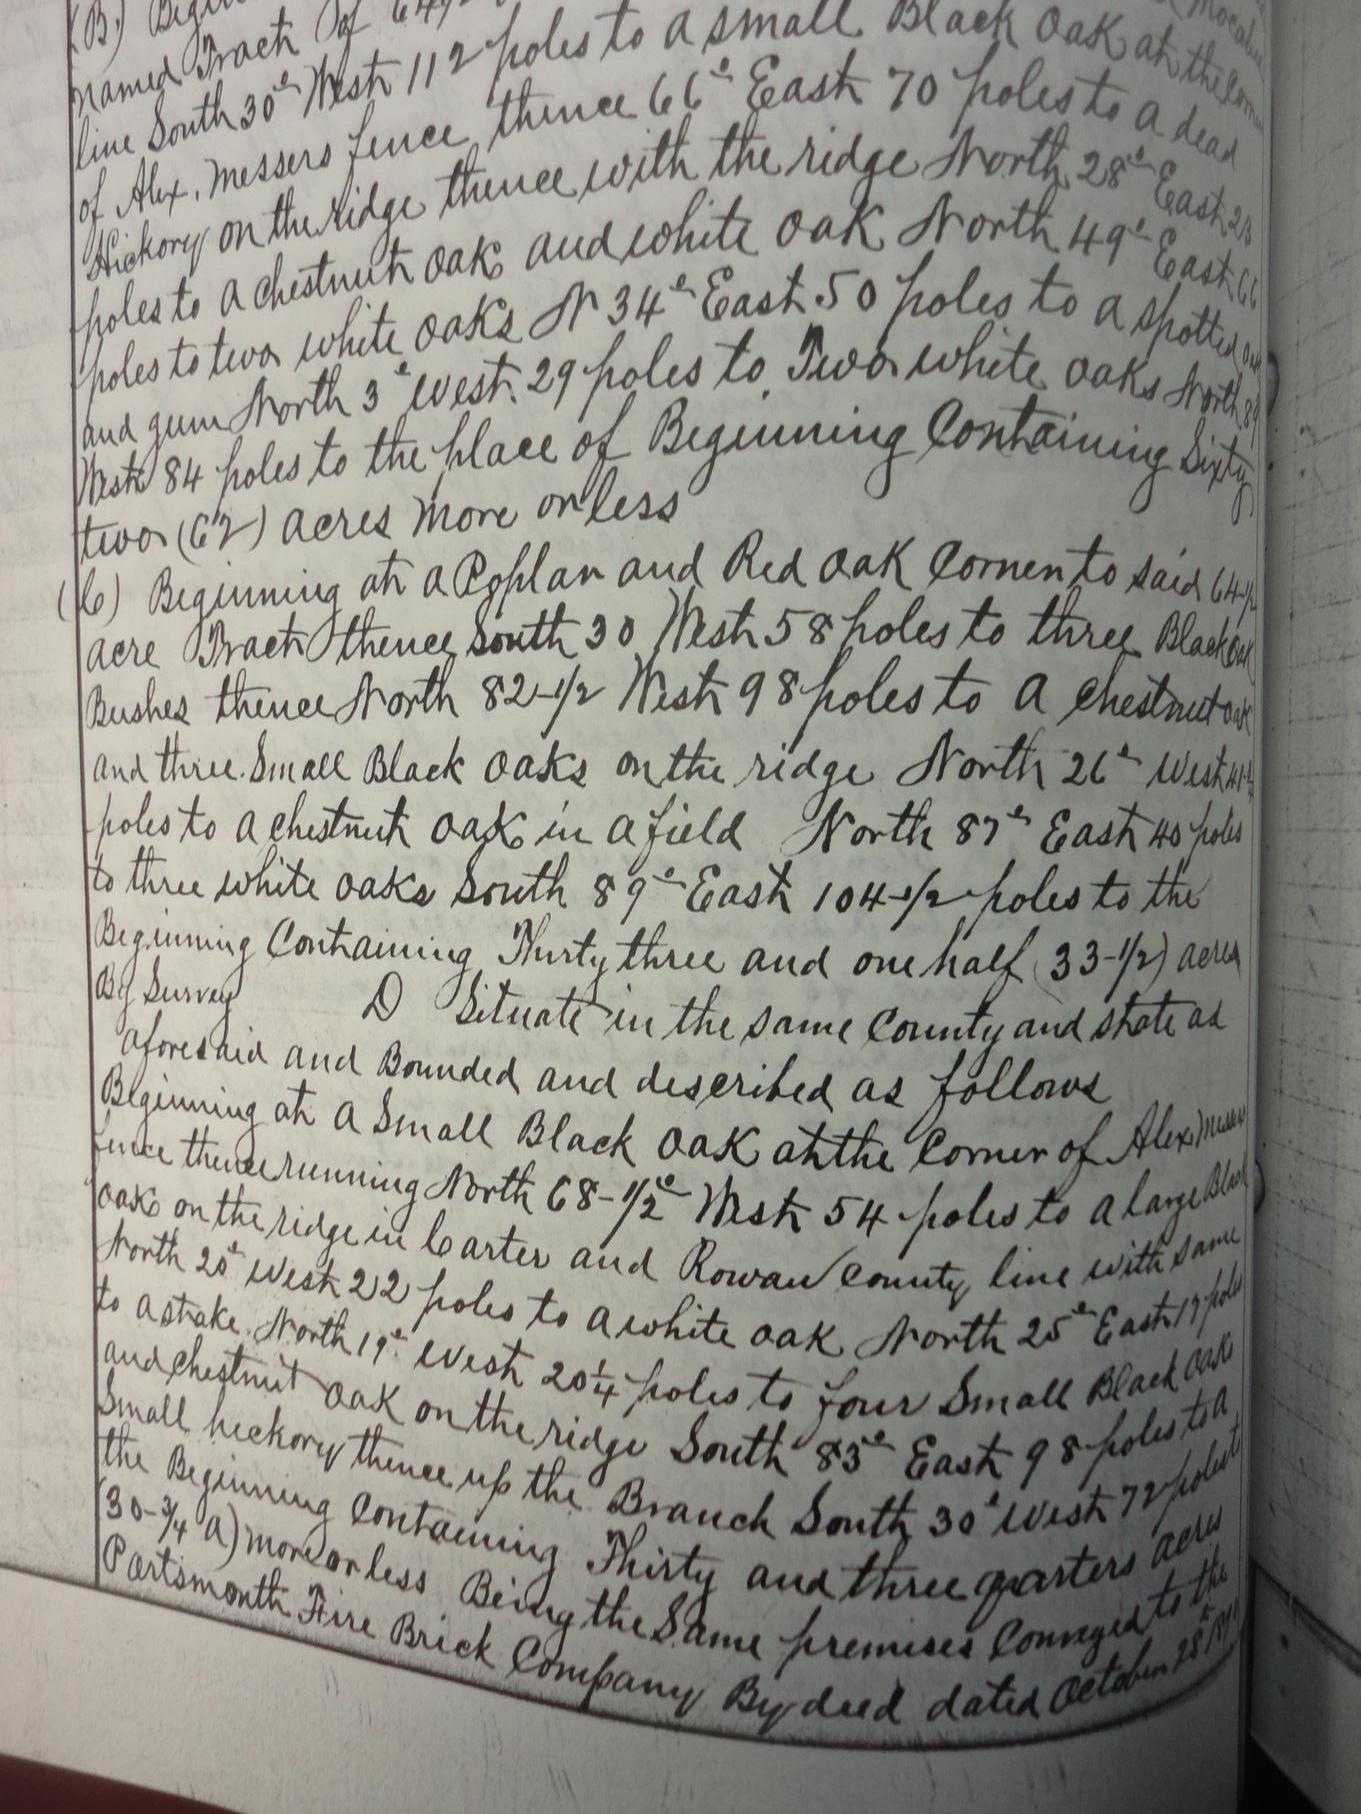 (B.)
named Tract of
line South 30° West 112 poles to a small Black Oak at the
of Alex. Messers fence thence 66° East 70 poles to a dead
Hickory on the ridge thence with the ridge North 28° East 23
poles to a chestnut oak and white oak North 49° East 66
poles to two white oaks N 34° East 50 poles to a spotted
and gum North 3° West. 29 poles to Two white oaks North
West 84 poles to the place of Beginning Containing Sixty
two (62) acres more or less
(C) Beginning at a Poplar and Red Oak Corner to said 64-1/2
acre Tract thence South 30 West 58 poles to three Black Oak
Bushes thence North 82-1/2 West 98 poles to a chestnut oak
and three small Black oaks on the ridge North 26° West
poles to a chestnut oak in a field North 87° East 40 poles
to three white oaks South 89° East 104-1/2 poles to the
Beginning Containing Thirty three and one half (33-1/2) acres
By Survey D Situate in the same County and state as
aforesaid and Bounded and described as follows
Beginning at a Small Black Oak at the Corner of Alex Messers
fence thence running North 68-1/2° West 54 poles to a large Black
oak on the ridge in Carter and Rowan County line with same
North 20° West 22 poles to a white oak North 25° East 17 poles
to a stake. North 19° West 20 1/4 poles to four Small Black oak
and chestnut oak on the ridge South 83° East 98 poles to a
Small hickory thence up the Branch South 30° West 72 poles to
the Beginning Containing Thirty and three quarters acres
(30-3/4 a) more or less Being the Same premises Conveyed to the
Portsmouth Fire Brick Company By deed dated October 28th